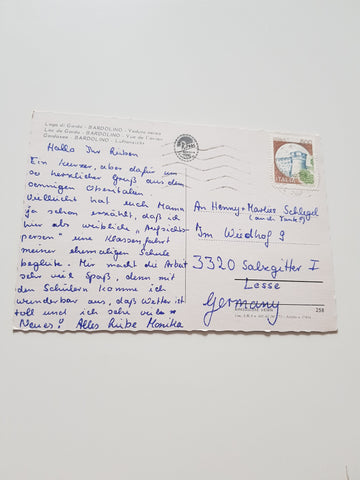 Lago di Garda - BARDOLINO - Veduta aerea
Lac de Garda - BARDOLINO - Vue de l'avion
Gardasee - BARDOLINO - Luftansicht
Hallo Ihr Lieben
Ein kurzer, aber dafür um
so herzlicher Gruß aus dem
sonnigen Oberitalien
Vielleicht hat euch Mama
ja schon erzählt, daß ich
hier als weibliche "Aufsichts-
person" und Klassenfahrt
meiner ehemaligen Schule
begleite. Mir macht die Arbeit
sehr viel Spaß, denn mit
den Schülern komme ich
wunderbar aus, das Wetter ist
toll und ich sehe viel
Neues! Alles Liebe Monika
ITALIA
An Henney + Marlies Schlegel
(auch Tanks?)
Im Wiedhof 9
3320 Salzgitter 1
Lesse
Germany
258